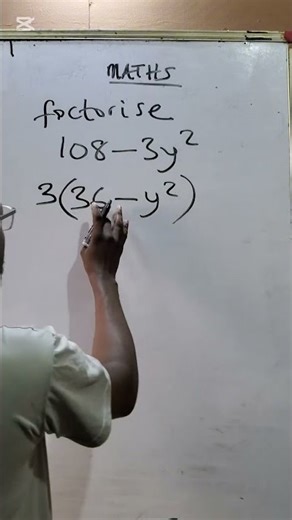 CapCut
MATHS
factorise
108 - 3y²
3(36 - y²)